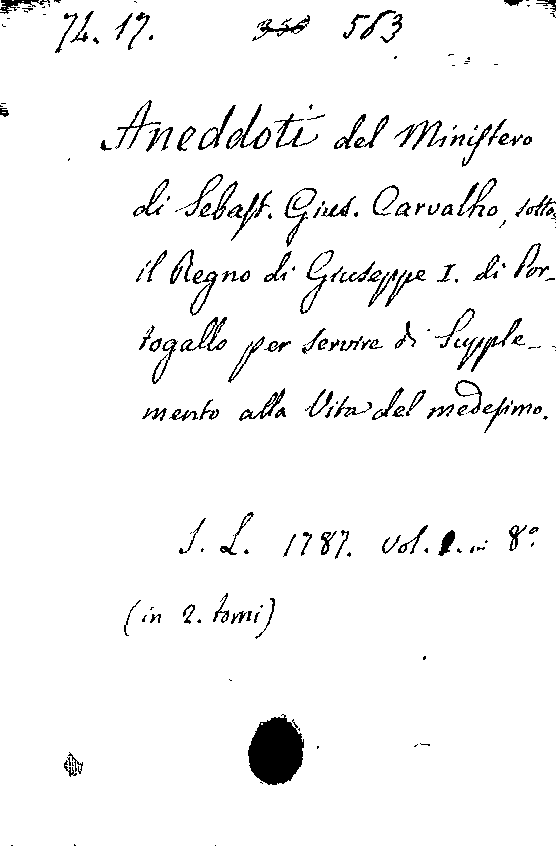 74. 17. 563
Aneddoti del Miniſtero
di Sebaſt. Gius. Carvalho, sotto
il Regno di Giuseppe I. di Por-
togallo per servire di Supple-
mento alla Vita del medeſimo.
S. L. 1787. vol. 1. in 8º.
(in 2. tomi)